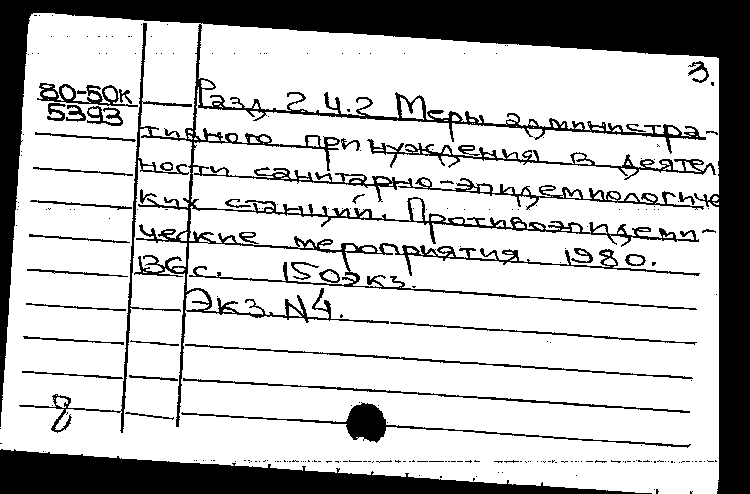 3.
80-50к
5393
Разд. 2.4.2 Меры администра-
тивного принуждения в деятел
ности санитарно-эпидемиологиче
ких станций. Противоэпидеми-
ческие мероприятия. 1980.
136с. 150экз.
Экз. N4.
8